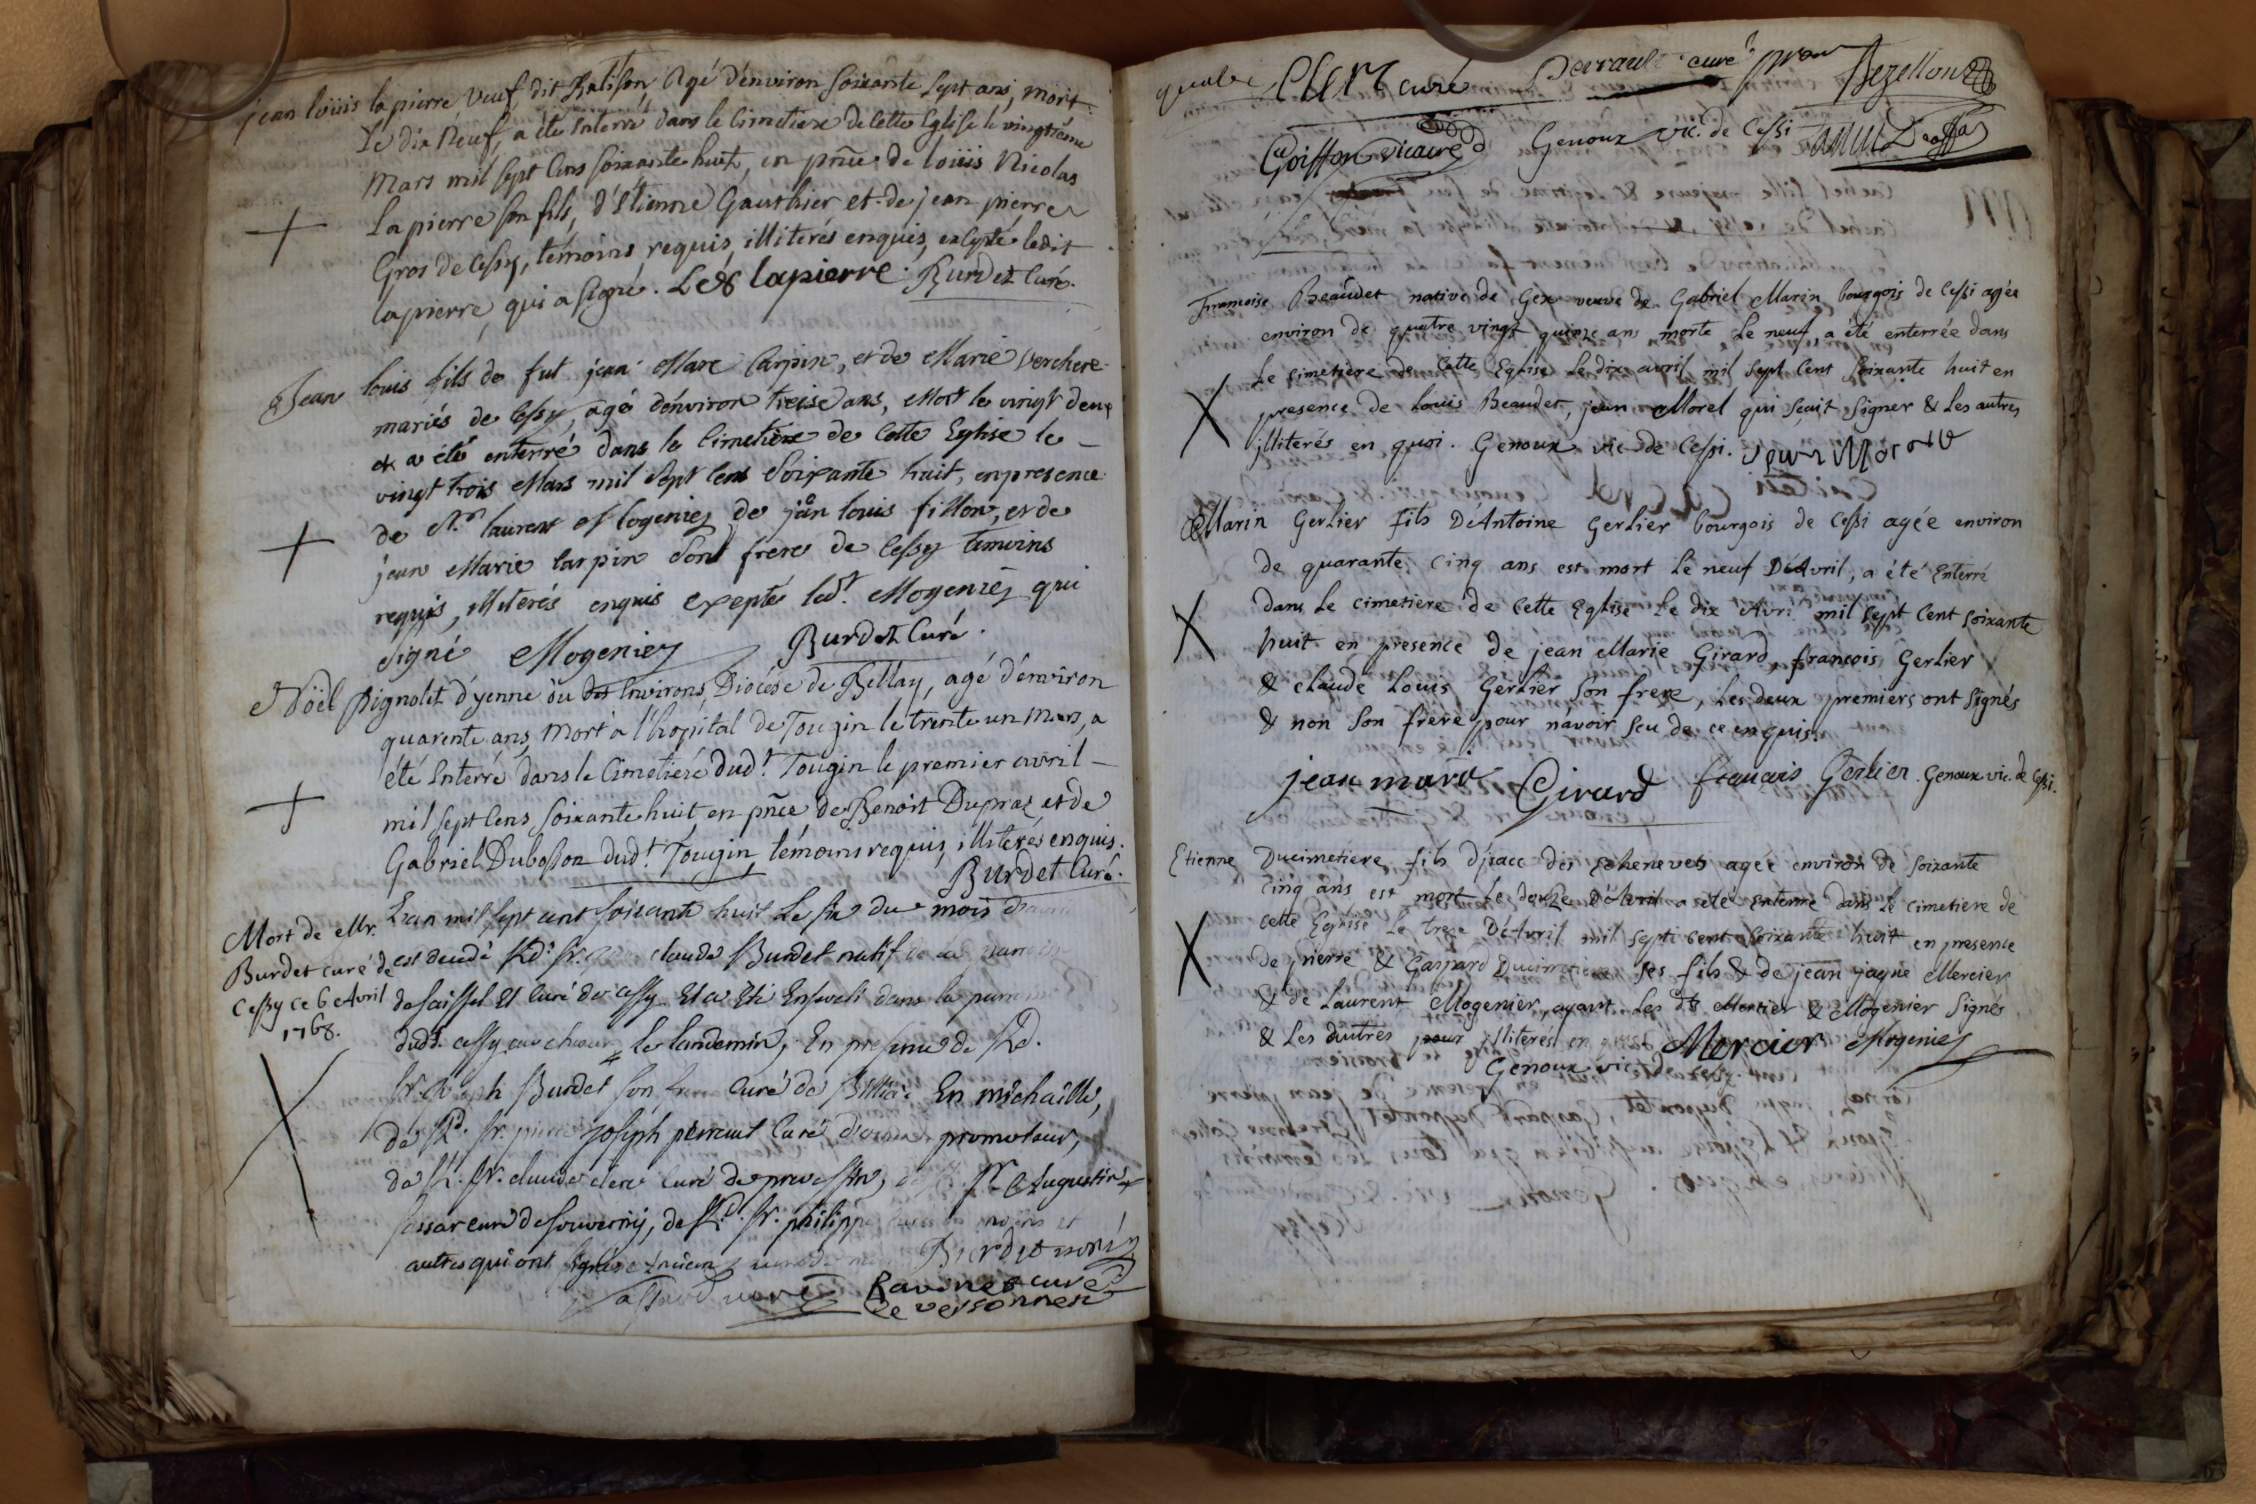 jean loüis lapierre veuf dit Balison agé d'environ soixante sept ans, mort
le dix neuf, a été enterré dans le Cimetiere de cette Eglise le vingtième
Mars mil sept cens soixante huit, en pñce de loüis Nicolas
lapierre son fils, d'Etienne Gauthier et de jean pierre
Gros de Cessy, témoins requis, illiterés enquis, excepté ledit
lapierre qui a signé. lapierre. Burdet Curé.
Jean louis fils de fut jean Marc Carpin, et de Marie Verchere
mariés de Cessy, agé d'environ treise ans, Mort le vingt deux
et a été enterré dans le Cimetiere de cette Eglise le
vingt trois Mars mil sept cens Soixante huit, en presence
de Sr. laurent Mogeniez de jean louis fillon, et de
jean Marie Carpin son frere de Cessy temoins
requis, illiterés enquis exepté led.t Mogeniez qui
signé Mogeniez Burdet Curé.
Noël pignolet d'yenne ou des Environs, Diocése de Bellay, agé d'environ
quarente ans, mort a l'hopital de Tougin le trente un Mars, a
été enterré dans le Cimetiere dud.t Tougin le premier avril
mil sept cens soixante huit en pñce de Benoit Dupraz et de
Gabriel Dubosson dud.t Tougin témoins requis, illiterés enquis.
Burdet Curé.
Mort de Mr.
Burdet curé de
Cessy ce 6 Avril
1768.
L'an mil sept cent soixante huit Le six du mois d'avril
est decedé Rd. Sr. claude Burdet natif de la
de saissel Et Curé de cessy Et a Eté Enseveli dans la
dudt. cessy au choeur le landemin, En presence de Rd.
Sr. joseph Burdet son frere Curé de Billia En michaille,
de Rd. Sr. pierre joseph perraut Curé promoteur,
de Rd. Sr. claude clerc Curé de prevessin, Sr. Augustin
Curé de souverny, de Rd. Sr. philippe
autres qui ont signés Burdet
Ravinet curé
de versonnex
Clerc curé Perrault curé Bezellon
Goiffon vicaire Genoux vic. de Cessi
Francoise Beaudet native de Gex veuve de Gabriel Marin bourgois de Cessi agée
environ de quatre vingt quinze ans morte le neuf, a été enterrée dans
Le cimetiere de Cette Eglise Le dix avril mil sept Cent soixante huit en
presence de Louis Beaudet, jean Morel qui sçait signer & Les autres
illiterés en quoi. Genoux vic de Cessi. jean Morel
Marin Gerlier fils D'Antoine Gerlier bourgois de Cessi agée environ
de quarante cinq ans est mort Le neuf D'Avril, a été Enterré
Dans Le cimetiere de Cette Eglise Le dix Avril mil sept Cent soixante
huit en presence de jean Marie Girard, francois Gerlier
& claude Louis Gerlier son frere, Les deux premiers ont signés
& non son frere pour n'avoir seu de ce enquis.
jean marie Girard francois Gerlier Genoux vic. de Cessi.
Etienne Ducimetiere fils D'jzacc des Echenevets agée environ de soixante
cinq ans est mort Le douze D'Avril a été Enterré Dans Le cimetiere de
Cette Eglise Le treze D'Avril mil sept cent soixante huit en presence
de pierre & Gaspard Ducimetiere ses fils & de jean jaque Mercier
& de Laurent Mogenier ayant Les dts Mercier & Mogenier signés
& Les autres pour illiterés Mercier Mogeniez
Genoux vic. de cessy.